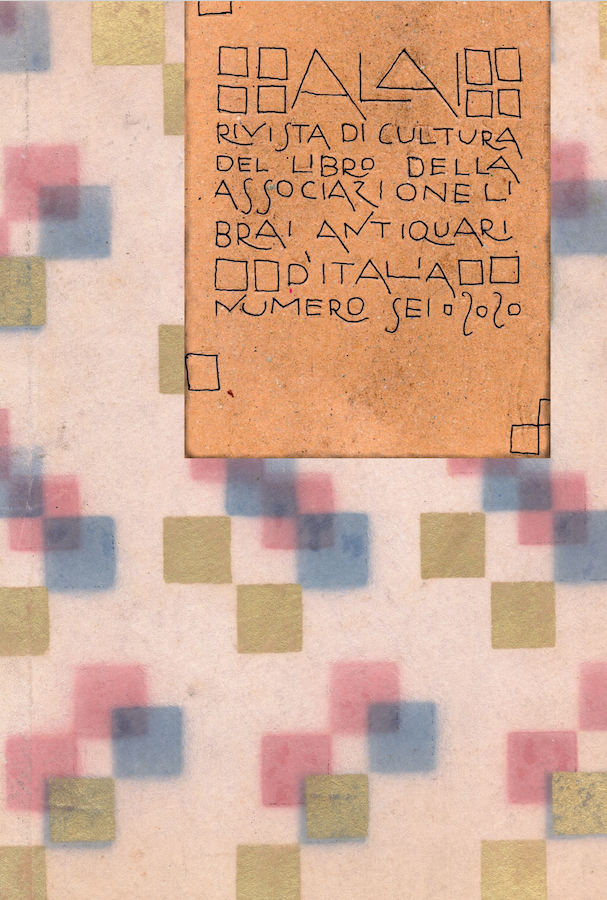 ALAI
RIVISTA DI CULTURA
DEL LIBRO DELLA
ASSOCIAZIONE LI
BRAI ANTIQUARI
D'ITALIA
NUMERO SEI 2020